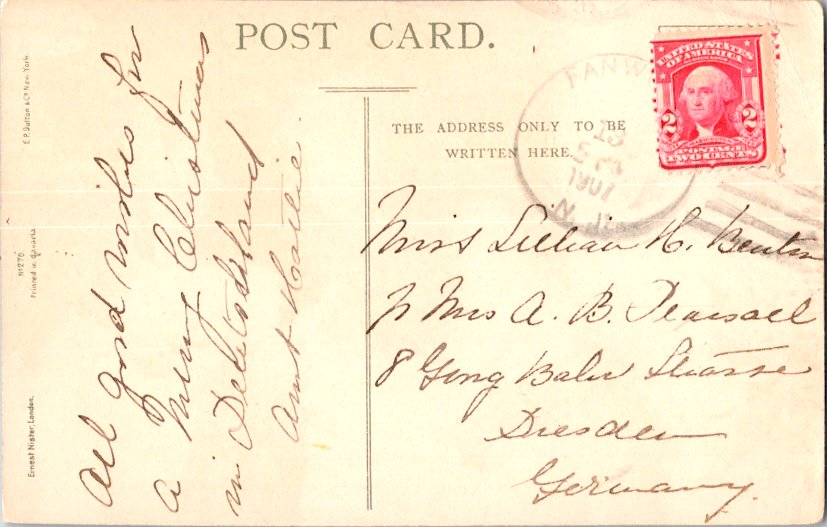 POST CARD.
THE ADDRESS ONLY TO BE
WRITTEN HERE.
E.P. Dutton & Co. New York.
No 276.
Printed in Bavaria.
Ernest Nister, London.
UNITED STATES
OF AMERICA
2 2
POSTAGE
TWO CENTS
FANW
13
1907
N.J.
All good wishes for
a Merry Christmas
in
Aunt Hattie.
Miss Lillian H. Benton
Mrs A. B. Pearsall
8
Dresden
Germany.